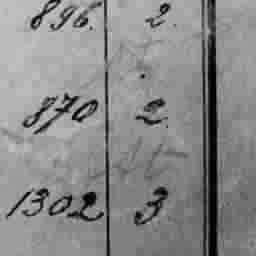 896. 2.
870 2.
1302 3.